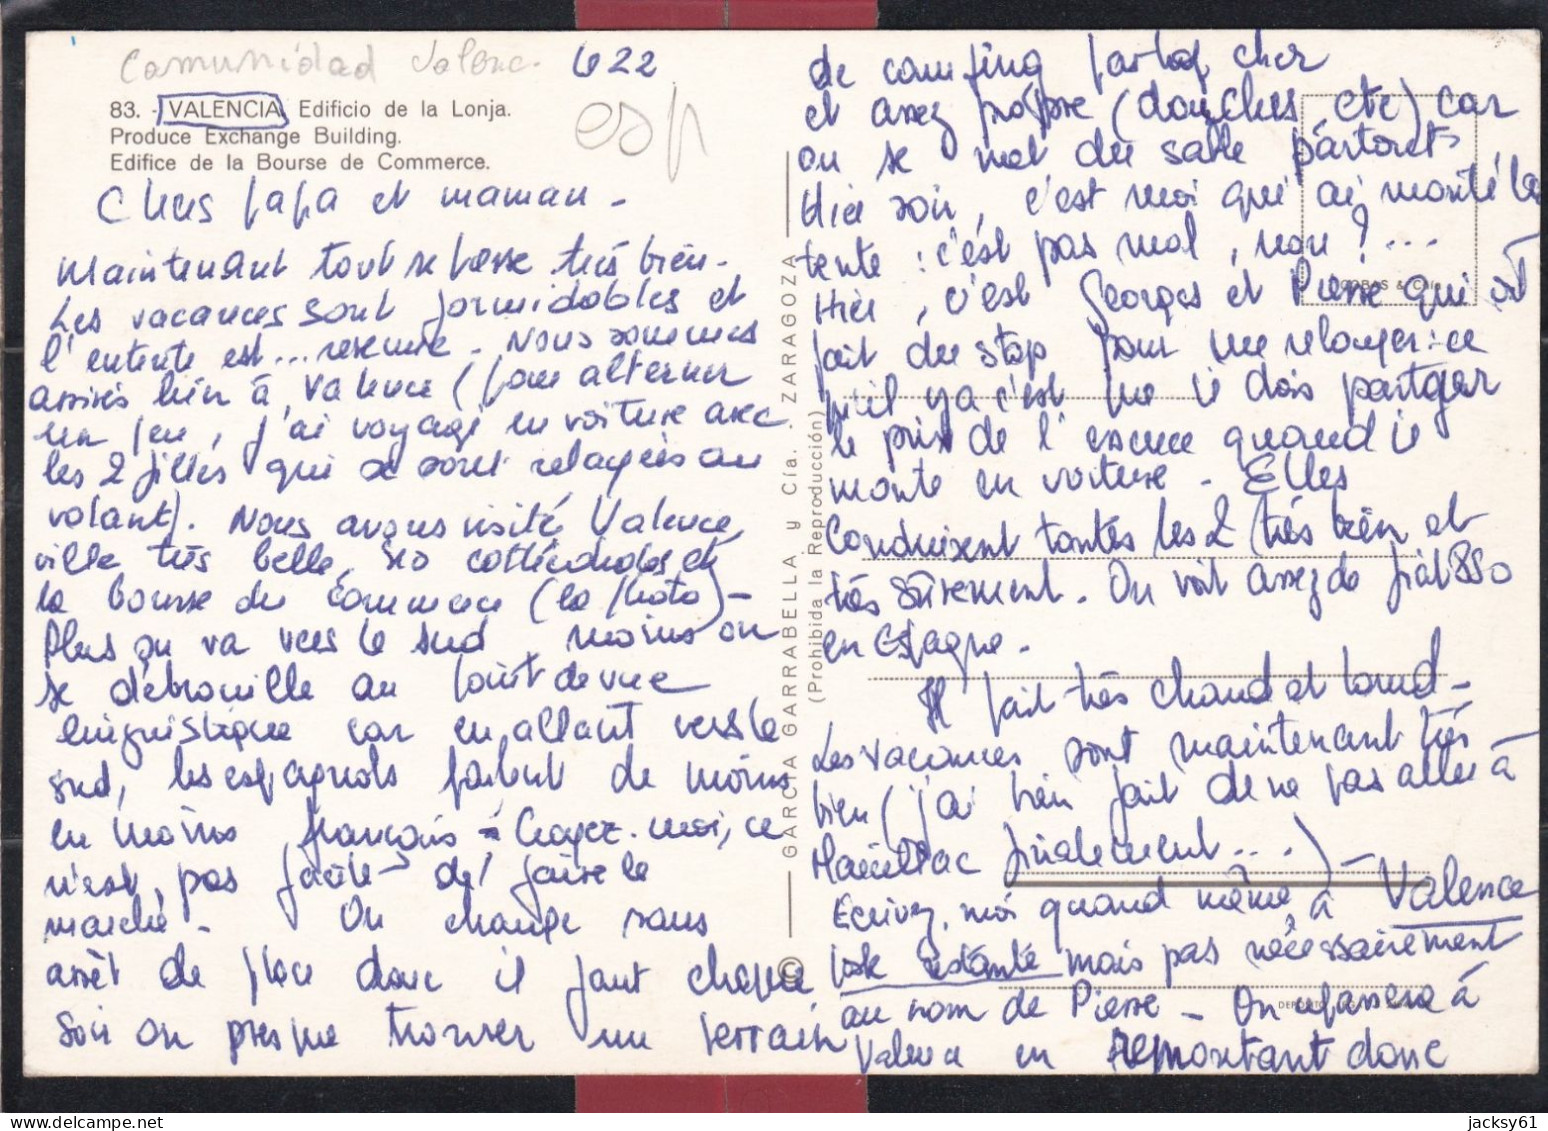 Comunidad Valenc. 622
83. - VALENCIA, Edificio de la Lonja.
Produce Exchange Building.
Edifice de la Bourse de Commerce.
esp
Chers papa et maman -
Maintenant tout se passe très bien.
Les vacances sont formidables et
l'entente est... revenue. Nous sommes
arrivés bien à Valence (pour alterner
un peu, j'ai voyagé en voiture avec
les 2 filles qui se sont relayées au
volant). Nous avons visité Valence,
ville très belle, sa cathédrale et
la bourse du commerce (la photo) -
Plus on va vers le sud moins on
se débrouille au point de vue
linguistique car en allant vers le
sud, les espagnols parlent de moins
en moins français. Croyez-moi, ce
n'est pas facile de faire le
marché - On change sans
arrêt de place donc il faut chaque
soir ou presque trouver un terrain
GARCIA GARRABELLA y Cía. - ZARAGOZA
(Prohibida la Reproducción)
©
de camping pas trop cher
et assez propre (douches, etc) car
on se met du sable partout.
Hier soir, c'est moi qui ai monté la
tente : c'est pas mal, non ? ...
Hier, c'est Georges et Pierre qui ont
fait du stop pour me relayer : ce
qu'il y a c'est que je dois partager
le prix de l'essence quand je
monte en voiture - Elles
conduisent toutes les 2 très bien et
très sûrement. On voit assez de fiat 850
en Espagne.
Il fait très chaud et lourd -
Les vacances sont maintenant très
bien (j'ai bien fait de ne pas aller à
finalement...) -
Ecrivez-moi quand même à Valence
poste restante mais pas nécessairement
au nom de Pierre - On repassera à
Valence en remontant donc
ESCOBAS & Cía.
DEPOSITO
jacksy61